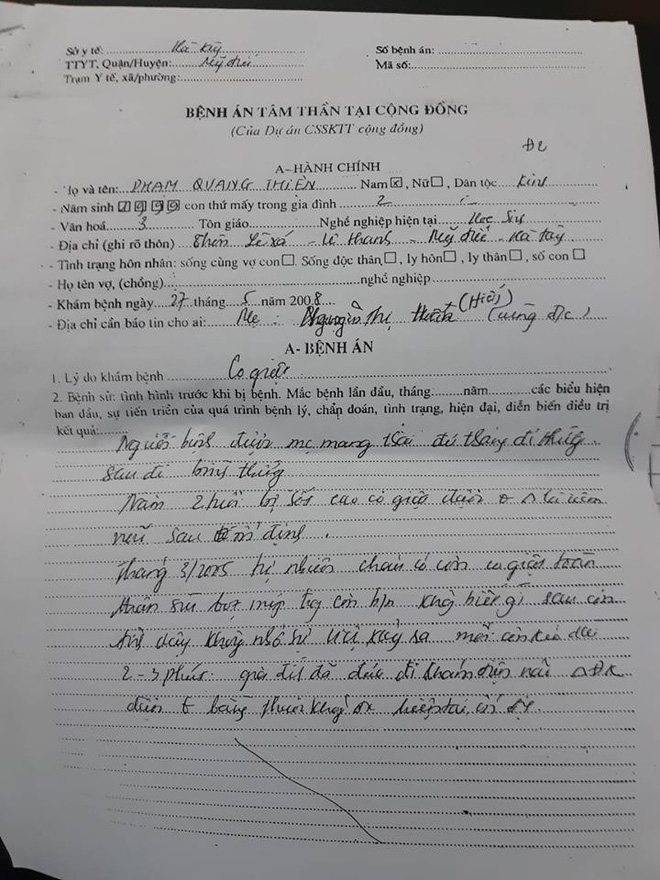 Sở y tế: Hà Tây Số bệnh án:
TTYT. Quận/Huyện: Mỹ Đức Mã số:
Trạm Y tế, xã/phường:
BỆNH ÁN TÂM THẦN TẠI CỘNG ĐỒNG
(Của Dự án CSSKTT cộng đồng)
A- HÀNH CHÍNH
- Họ và tên: PHẠM QUANG THIÊN Nam x, Nữ, Dân tộc Kinh
- Năm sinh con thứ mấy trong gia đình 2
- Văn hoá 3 Tôn giáo Nghề nghiệp hiện tại Học Sinh
- Địa chỉ (ghi rõ thôn) Thôn Lê Xá - Lê Thanh - Mỹ Đức - Hà Tây
- Tình trạng hôn nhân: sống cùng vợ con. Sống độc thân, ly hôn, ly thân, số con
- Họ tên vợ, (chồng) nghề nghiệp
- Khám bệnh ngày 27 tháng 5 năm 2008
- Địa chỉ cần báo tin cho ai: Mẹ: Nguyễn Thị (Hiếu) (cùng đ/c)
A- BỆNH ÁN
1. Lý do khám bệnh Co giật
2. Bệnh sử: tình hình trước khi bị bệnh. Mắc bệnh lần đầu, tháng năm các biểu hiện
ban đầu, sự tiến triển của quá trình bệnh lý, chẩn đoán, tình trạng, hiện đại, diễn biến điều trị
kết quả:
Người bệnh được mẹ mang thai đủ tháng đẻ thường
sau đẻ bình thường
Năm 2 tuổi bị sốt cao co giật được là viêm
não sau ổn định.
Tháng 3/2005 tự nhiên cháu có cơn co giật toàn
thân sùi bọt mép trong cơn không biết gì sau cơn
tỉnh dậy không nhớ sự việc xảy ra mỗi cơn kéo dài
2 - 3 phút. gia đình đã đưa đi khám điện não ĐK
bằng thuốc hiện tại